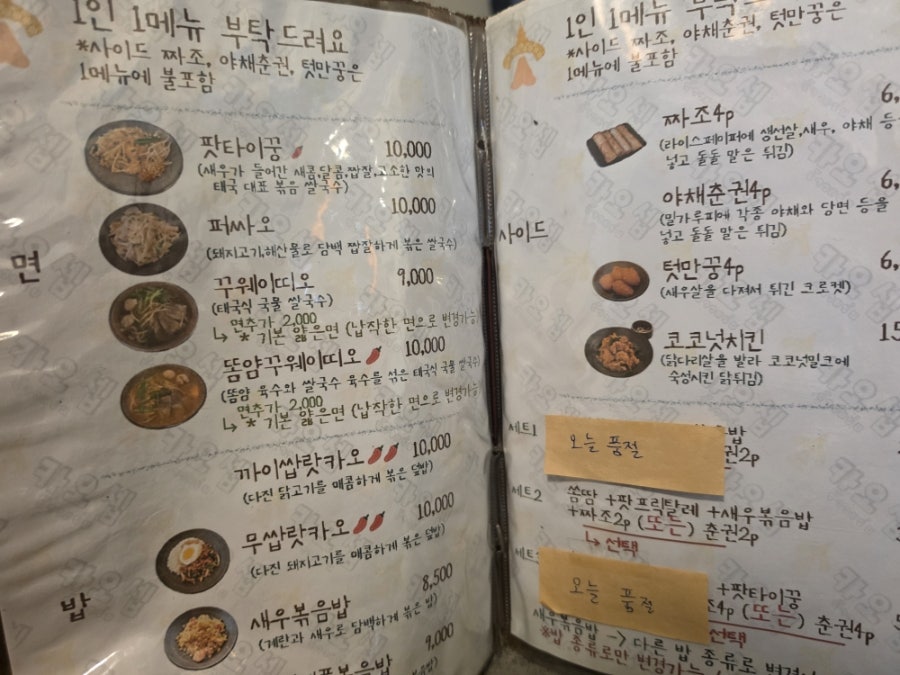 1인 1메뉴 부탁드려요
*사이드 짜조, 야채춘권, 텃만꿍은
1메뉴에 불포함
면
팟타이꿍 10,000
(새우가 들어간 새콤,달콤,짭짤,고소한 맛의
태국 대표 볶음 쌀국수)
퍼싸오 10,000
(돼지고기,해산물로 담백 짭잘하게 볶은 쌀국수)
꾸웨이띠오 9,000
(태국식 국물 쌀국수)
면추가 2,000
↳ * 기본 얇은면 (납작한 면으로 변경가능)
똠얌꾸웨이띠오 10,000
(똠얌 육수와 쌀국수 육수를 섞은 태국식 국물 쌀국수)
면추가 2,000
↳ * 기본 얇은면 (납작한 면으로 변경가능)
밥
까이쌉랏카오 10,000
(다진 닭고기를 매콤하게 볶은 덮밥)
무쌉랏카오 10,000
(다진 돼지고기를 매콤하게 볶은 덮밥)
새우볶음밥 8,500
(계란과 새우로 담백하게 볶은 밥)
볶음밥 9,000
1인 1메뉴
*사이드 짜조, 야채춘권, 텃만꿍은
1메뉴에 불포함
사이드
짜조4p 6,
(라이스페이퍼에 생선살,새우, 야채 등
넣고 돌돌 말은 튀김)
야채춘권4p 6,
(밀가루피에 각종 야채와 당면 등을
넣고 돌돌 말은 튀김)
텃만꿍4p 6,
(새우살을 다져서 튀긴 크로켓)
코코넛치킨 15
(닭다리살을 발라 코코넛밀크에
숙성시킨 닭튀김)
세트1
오늘 품절
음밥
권2p
세트2 쏨땀 +팟프릭탈레 +새우볶음밥
+짜조2p (또는) 춘권2p
↳ 선택
오늘 품절
+팟타이꿍
4p (또는) 춘권4p
선택
새우볶음밥 -> 다른 밥 종류로 변경
*밥 종류로만 변경가능